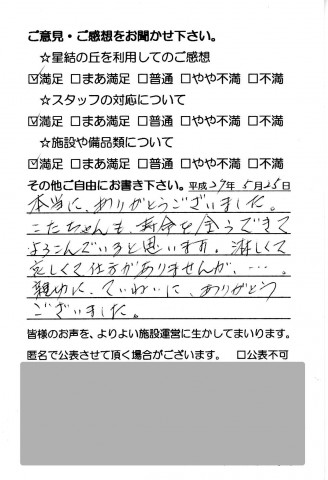 ご意見・ご感想をお聞かせ下さい。
☆星結の丘を利用してのご感想
☑満足 □まあ満足 □普通 □やや不満 □不満
☆スタッフの対応について
☑満足 □まあ満足 □普通 □やや不満 □不満
☆施設や備品類について
☑満足 □まあ満足 □普通 □やや不満 □不満
その他ご自由にお書き下さい。平成29年5月25日
本当に、ありがとうございました。
こたちゃんも、寿命を全うできて
よろこんでいると思います。淋しくて
哀しくて仕方がありませんが、…。
親切に、ていねいに、ありがとう
ございました。
皆様のお声を、よりよい施設運営に生かしてまいります。
匿名で公表させて頂く場合がございます。 □公表不可